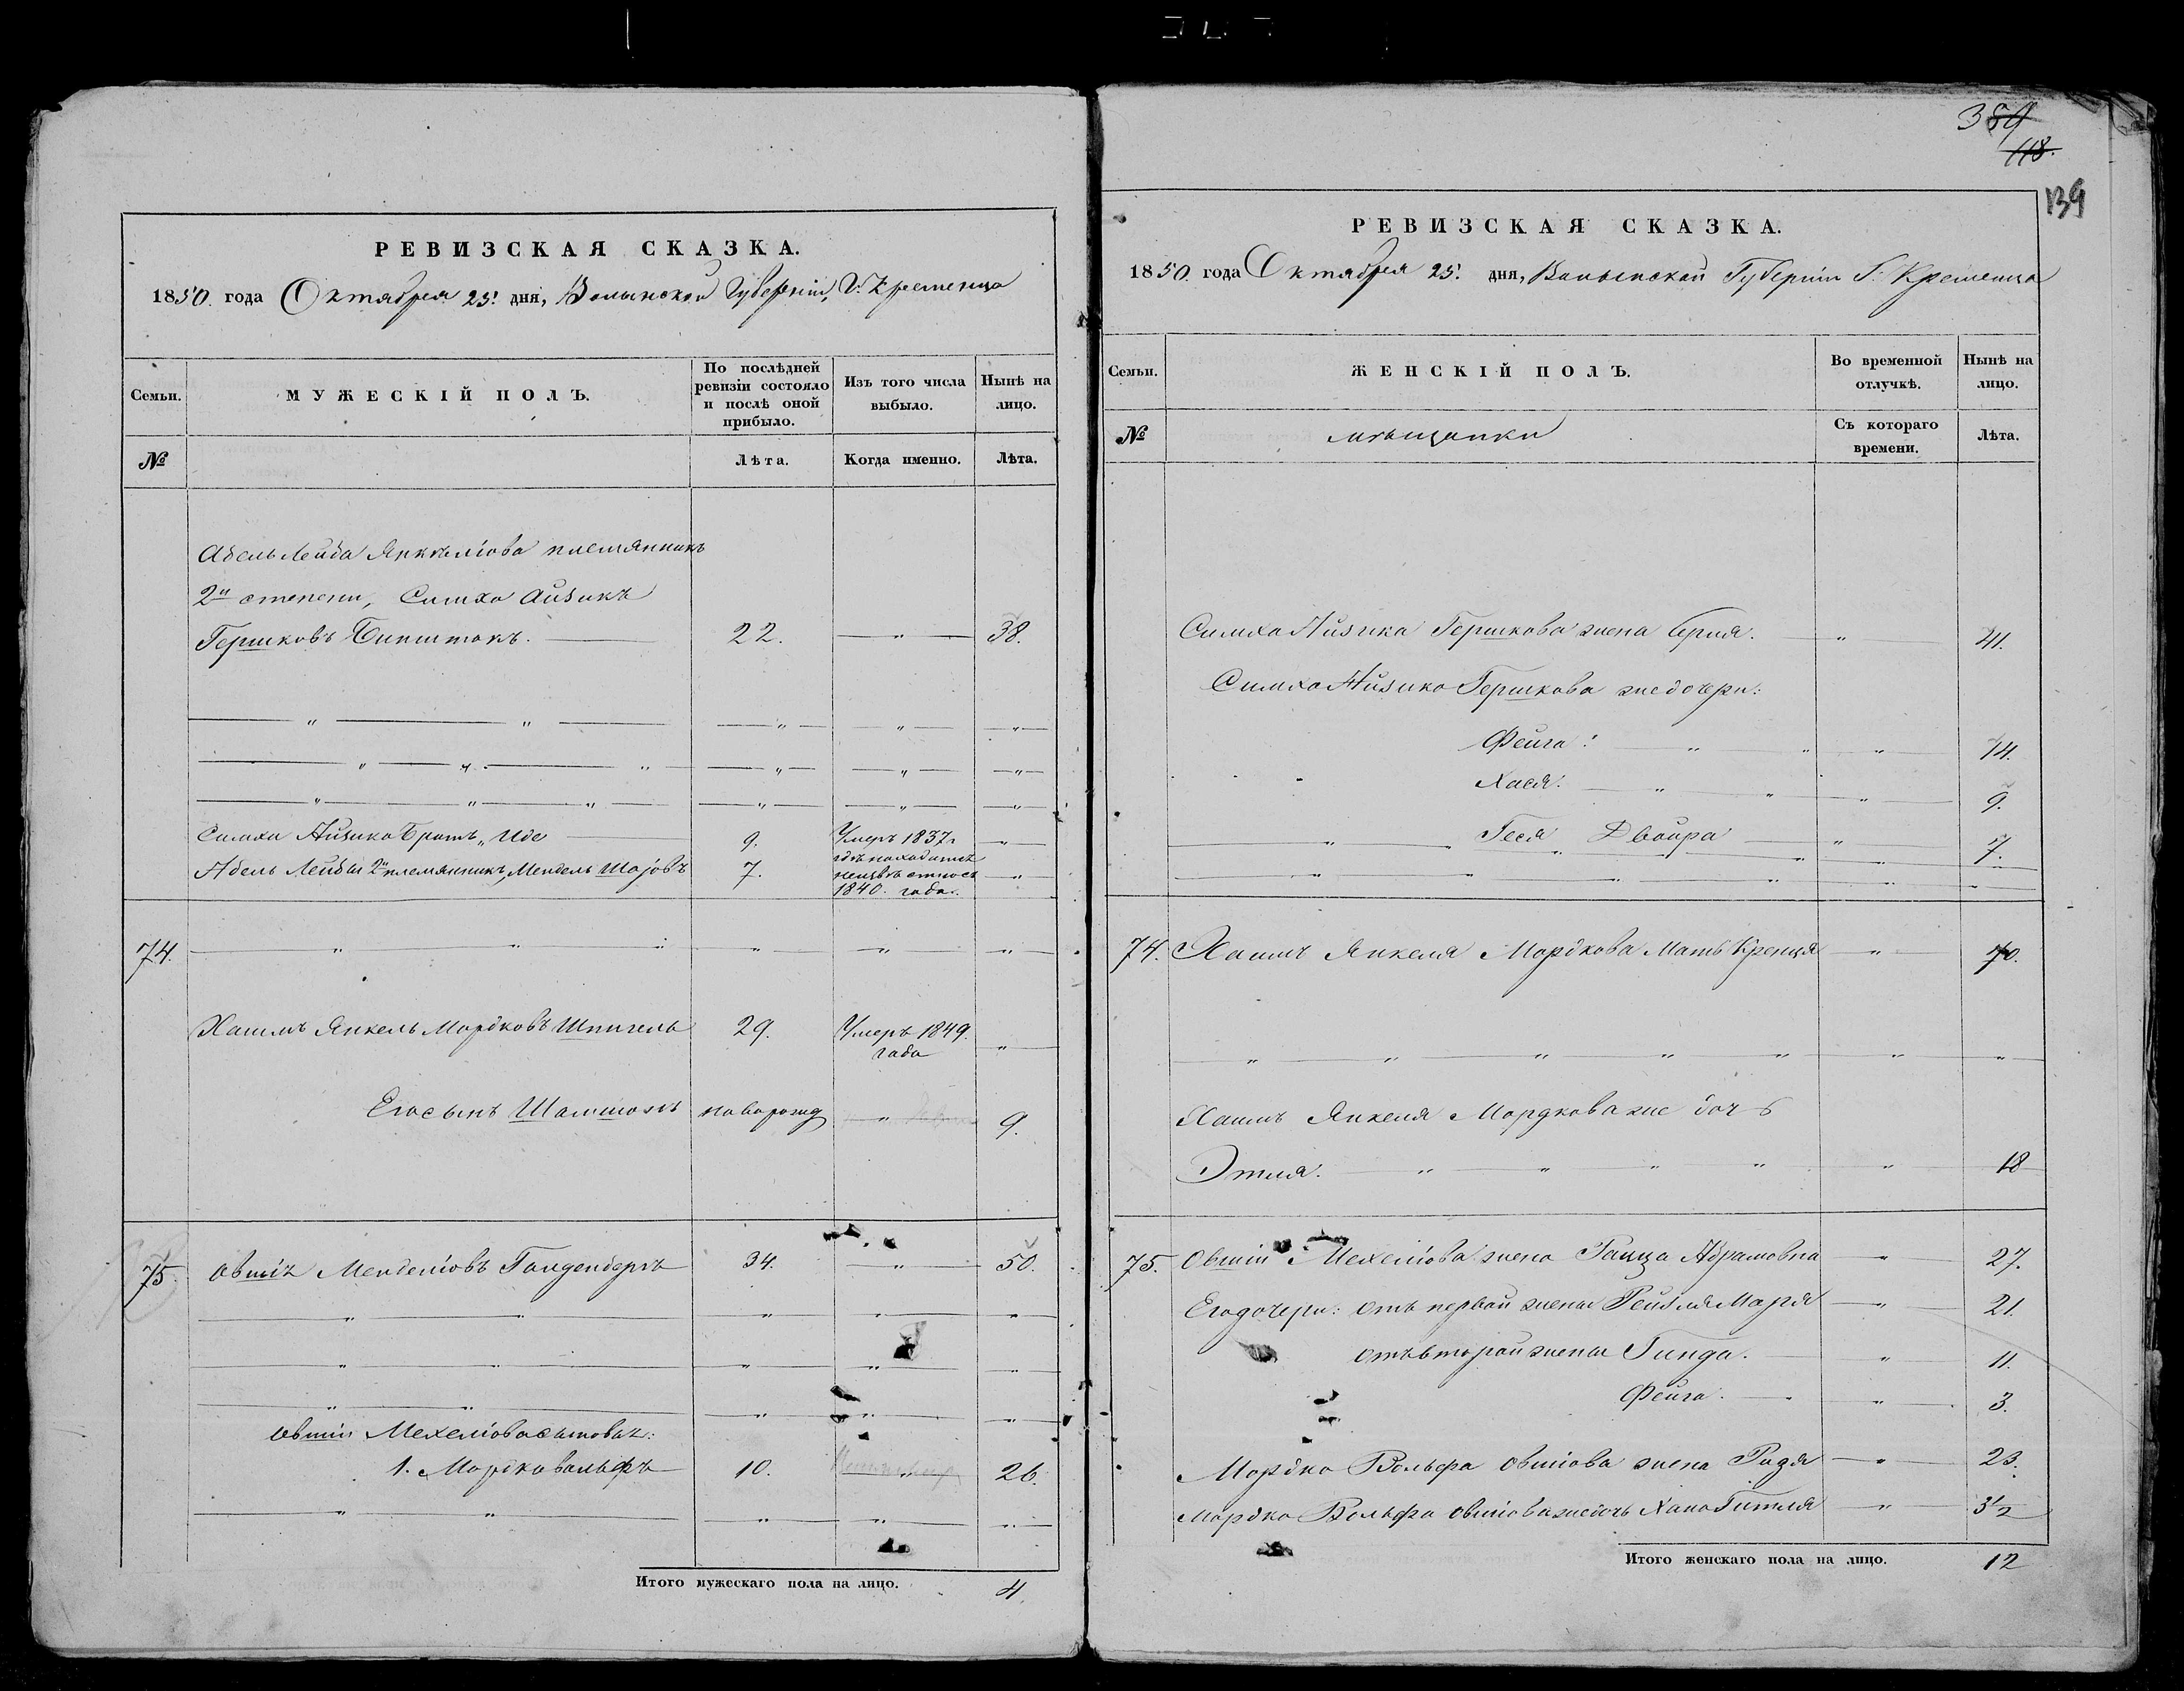 РЕВИЗСКАЯ СКАЗКА.
1850. года Октября 25. дня, Волынской Губерніи, Г. Кременца
Семьи.
МУЖЕСКІЙ ПОЛЪ.
По послѣдней ревизіи состояло и послѣ оной прибыло.
Изъ того числа выбыло.
Нынѣ на лицо.
№
Лѣта.
Когда именно.
Лѣта.
Абель Лейба Янкеліова племянникъ
2й степени, Симха Айзикъ
Гершковъ 22. " 38.
Симхи Айзика братъ, Иде 9. Умеръ 1837 г "
Абель Лейбы 2й племянникъ, Мендель Шаіовъ 7. гдѣ находится неизвѣстно съ 1840. года. "
74. " " " " " "
Хаимъ Янкель Мордковъ Шпигель 29. Умеръ 1849. года "
Его сынъ Шамшонъ новорожд " 9.
75. Овшія 34. " 50.
Овшіи Мехеліова сыновья:
1. Мордко Вольфъ 10. " 26.
Итого мужескаго пола на лицо. 4.
389
118.
139
РЕВИЗСКАЯ СКАЗКА.
1850. года Октября 25. дня, Волынской Губерніи Г. Кременца
Семьи.
ЖЕНСКІЙ ПОЛЪ.
Во временной отлучкѣ.
Нынѣ на лицо.
№
мѣщанки
Съ котораго времени.
Лѣта.
Симха Айзика Гершкова жена " 41.
Симхо Айзико Гершкова же дочери:
Фейга: " " " 14.
Хася. " " " 9.
Геся Двойра " 7.
74. Хаимъ Янкеля Мордкова Мать Кренця " 70.
Хаимъ Янкеля Мордкова же дочь
Этля. " " " " " 18
75. Овшіи Мехеліова жена Абрамовна " 27.
Его дочери: отъ первой жены Рейзля Маря " 21.
отъ второй жены Гинда. " 11.
Фейга. " 3.
Мордко Вольфа Овшіова жена " 23.
Мордко Вольфа Овшіова же дочь Хана Гитля " 3 1/2
Итого женскаго пола на лицо. 12